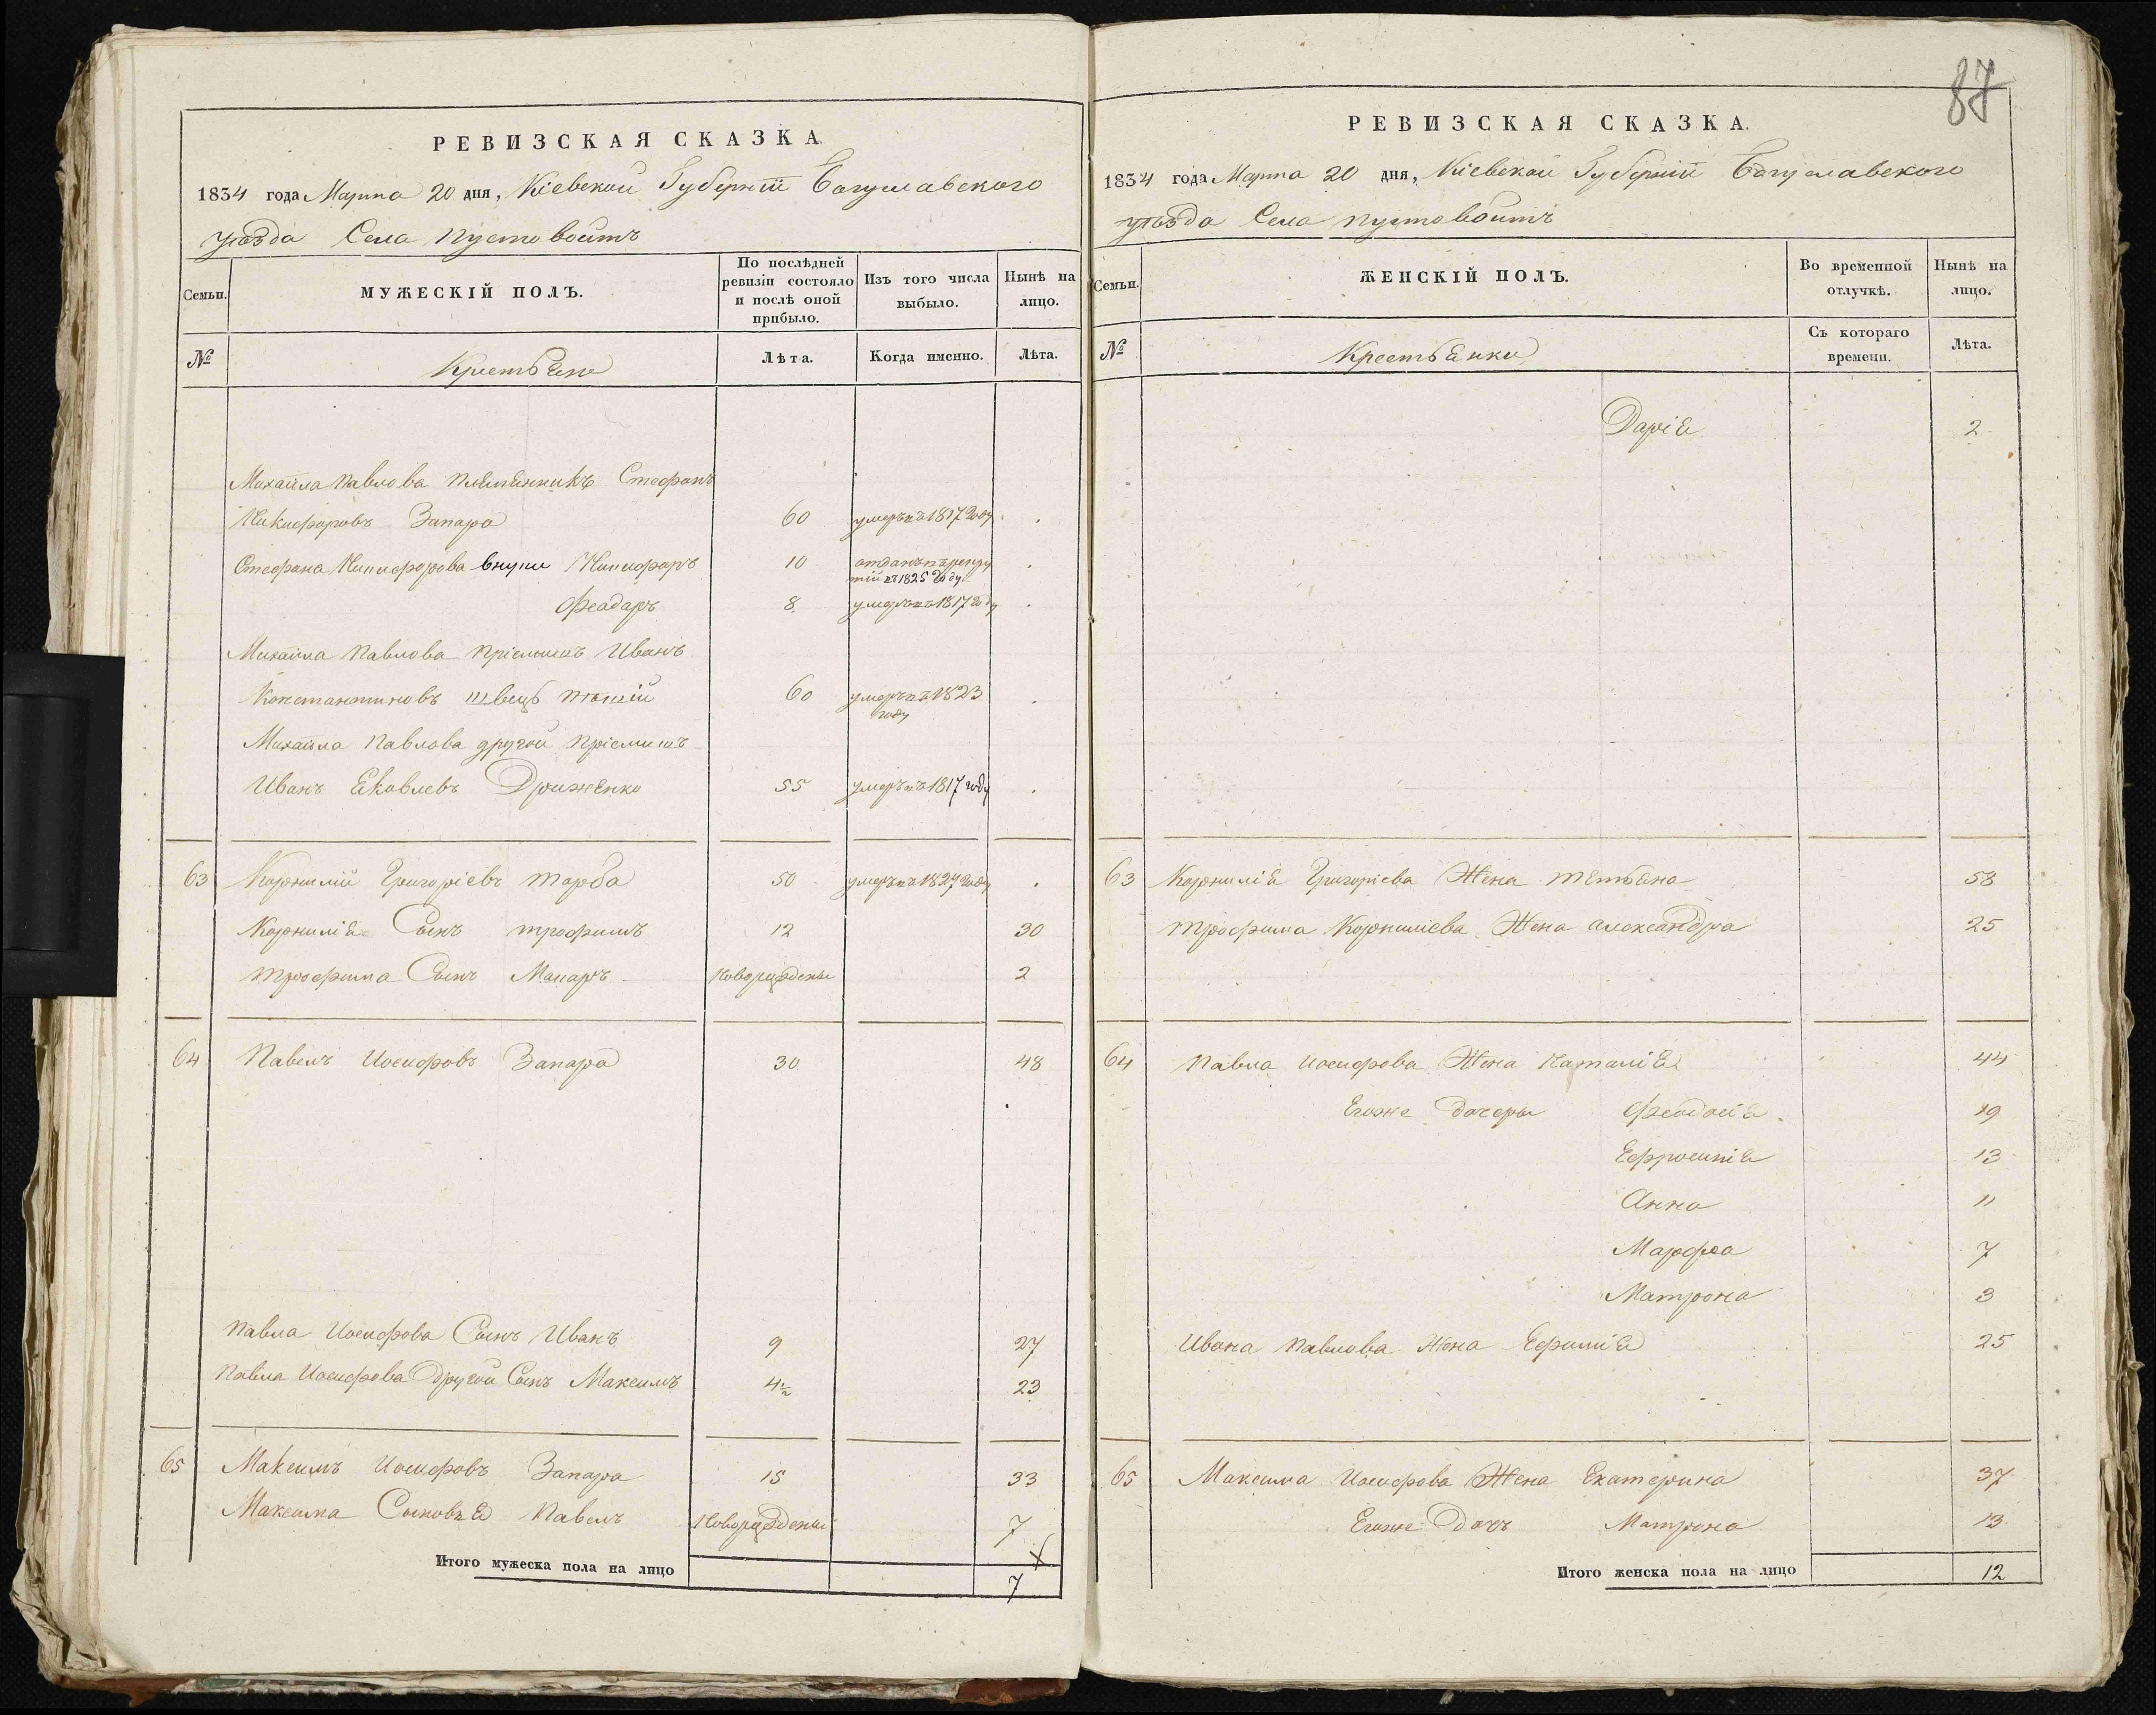 РЕВИЗСКАЯ СКАЗКА.
1834 года Марта 20 дня, Кіевской Губерніи Богуславского
уѣзда Села Пустовойтъ
Семьи.
МУЖЕСКІЙ ПОЛЪ.
По послѣдней ревизіи состояло и послѣ оной прибыло.
Изъ того числа выбыло.
Нынѣ на лицо.
№
Крестьяне
Лѣта.
Когда именно.
Лѣта.
Михайла Павлова племянникъ Стефанъ
Никифоровъ Запара 60 умеръ въ 1817 году
Стефана Никифорова внуки Никифоръ 10 отданъ въ рекру
ты въ 1825 году
Феодаръ 8 умеръ въ 1817 году
Михайла Павлова пріемышъ Иванъ
Константиновъ швецъ 60 умеръ въ 1823
году
Михайла Павлова другой пріемышъ
Иванъ Яковлевъ Дриженко 55 умеръ въ 1817 году
63 Корнилій Григоріевъ Торба 50 умеръ въ 1827 году
Корнилія Сынъ Трофимъ 12 30
Трофима Сынъ Макаръ новорожденый 2
64 Павелъ Иосифовъ Запара 30 48
Павла Иосифова Сынъ Иванъ 9 27
Павла Иосифова другой Сынъ Максимъ 4½ 23
65 Максимъ Иосифовъ Запара 15 33
Максима Сыновья Павелъ новорожденый 7
Итого мужеска пола на лицо 7
87
РЕВИЗСКАЯ СКАЗКА.
1834 года Марта 20 дня, Кіевской Губерніи Богуславского
уѣзда Села Пустовойтъ
Семьи.
ЖЕНСКІЙ ПОЛЪ.
Во временной отлучкѣ.
Нынѣ на лицо.
№
Крестьянки
Съ котораго времени.
Лѣта.
Дарія 2
63 Корнилія Григоріева Жена Татьяна 58
Трофима Корниліева Жена Александра 25
64 Павла Иосифова Жена Наталія 44
Егоже дочеры Феодосія 19
Ефросинія 13
Анна 11
Марфа 7
Матрона 3
Ивана Павлова Жена Ефимія 25
65 Максима Иосифова Жена Екатерина 37
Егоже дочь Матрона 13
Итого женска пола на лицо 12